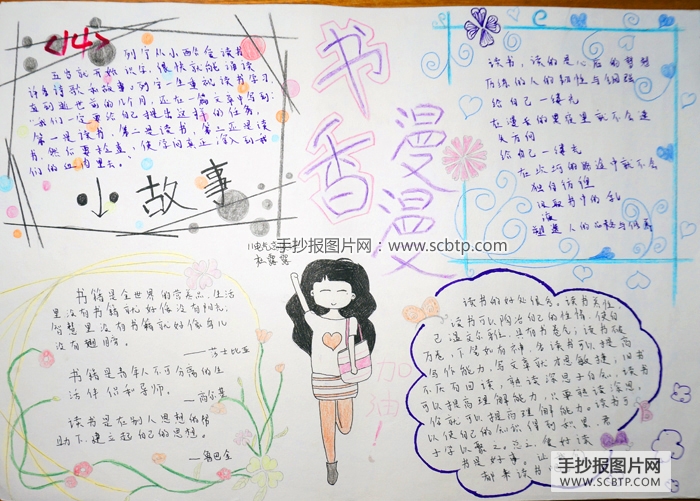 <14>
列宁从小酷爱读书
五岁就开始识字,很快就能诵读
许多诗歌和故事。列宁一生重视读书学习,
直到逝世前的几个月,还在一篇文章中写到:
"我们一定要给自己提出这样的任务:
第一是读书,第二是读书,第三还是读
书,然后要检查,使学问真正深入到我
们的血肉里去。
小故事
书香
漫漫
读书,读的是心后的
历练的人的韧性与
给自己一缕光
在漫长的里就不会迷
失方向
给自己一缕光
在坎坷的路途中就不会
独自彷徨
汲取书中的乳
液
塑造人的品格与修养
手抄报图片网:www.scbtp.com
书籍是全世界的营养品,生活
里没有书籍就好像没有阳光;
智慧里没有书籍就好像鸟儿
没有翅膀。
——莎士比亚
书籍是青年人不可分离的生
活伴侣和导师。
——高尔基
读书是在别人思想的帮
助下,建立起自己的思想。
——鲁巴金
加油!
读书的好处很多。读书
读书可以陶冶自己的性情,使自
己温文尔雅,具有书卷气;读书破
万卷,下笔如有神,多读书可以提高
写作能力,写文章就才思敏捷;旧书
不厌百回读,熟读深思子自知,读书
可以提高理解能力,只要熟读深思,
你就可以提高理解能力。读书可
以使自己的知识得到积累,君
子学以聚之。总之,爱好读
书是好事。让
都来读书
手抄报图片网
WWW.SCBTP.COM